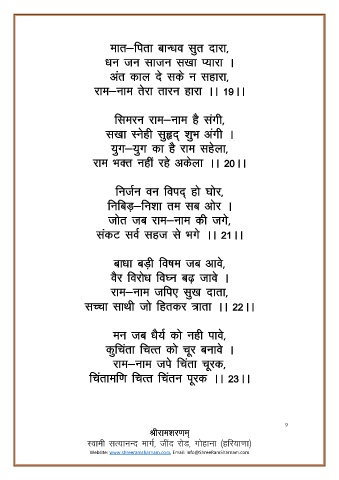 मात–पिता बान्धव सुत दारा,
धन जन साजन सखा प्यारा ।
अंत काल दे सके न सहारा,
राम–नाम तेरा तारन हारा ।। 19।।
सिमरन राम–नाम है संगी,
सखा स्नेही सुहृद् शुभ अंगी ।
युग–युग का है राम सहेला,
राम भक्त नहीं रहे अकेला ।। 20।।
निर्जन वन विपद् हो घोर,
निबिड़–निशा तम सब ओर ।
जोत जब राम–नाम की जगे,
संकट सर्व सहज से भगे ।। 21।।
बाधा बड़ी विषम जब आवे,
वैर विरोध विघ्न बढ़ जावे ।
राम–नाम जपिए सुख दाता,
सच्चा साथी जो हितकर त्राता ।। 22।।
मन जब धैर्य को नही पावे,
कुचिंता चित्त को चूर बनावे ।
राम–नाम जपे चिंता चूरक,
चिंतामणि चित्त चिंतन पूरक ।। 23।।
९
श्रीरामशरणम्
स्वामी सत्यानन्द मार्ग, जींद रोड, गोहाना (हरियाणा)
Website: www.shreeramsharnam.com, Email: info@ShreeRamSharnam.com